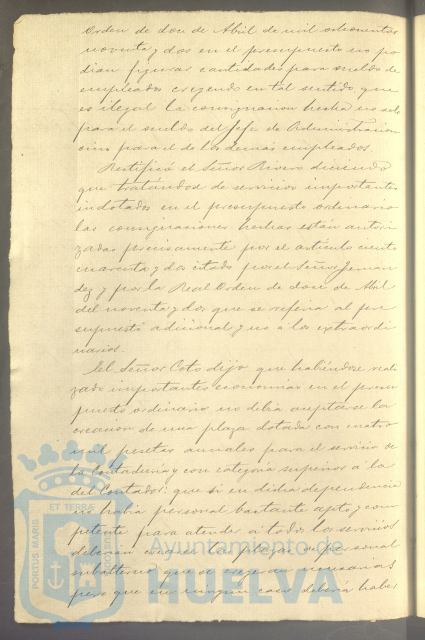 Orden de doce de Abril de mil ochocientos
noventa y dos en el presupuesto no po
dian figurar cantidades para sueldo de
empleados creyendo en tal sentido que
es ilegal la consignacion hecha no solo
para el sueldo del Jefe de Administracion
sino para el de los demas empleados.
Rectificó el Señor Rivero diciendo
que tratándose de servicios importantes
indotados en el presupuesto ordinario
las consignaciones hechas están autori
zadas precisamente por el artículo ciento
cuarenta y dos citado por el Señor
dez y por la Real Orden de doce de Abril
del noventa y dos que se referia al pre
supuesto adicional y no a los extraordi
narios.
El Señor Coto dijo que habiéndose reali
zado importantes economias en el presu
puesto ordinario no debia aceptarse la
creacion de una plaza dotada con cuatro
mil pesetas anuales para el servicio de
la Contaduria y con categoria superior a la
del Contador: que si en dicha dependencia
no habia personal bastante apto y com
petente para atender a todos los servicios
deberan crearse las plazas de personal
subalterno que se crean necesarias
pero que en ningun caso deberá haber
PORTUS MARIS
ET TERRÆ
CUSTODIA
Ayuntamiento de
HUELVA